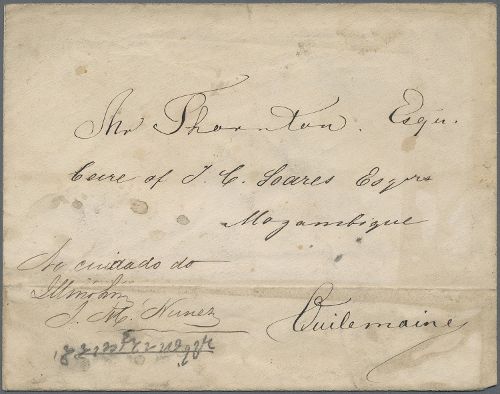 Mr Thornton. Esqu.
Care of J. C. Soares Esqrs
Mozambique
Ao cuidado do
Illmo Snr
J. M. Nunez
Quilemaine